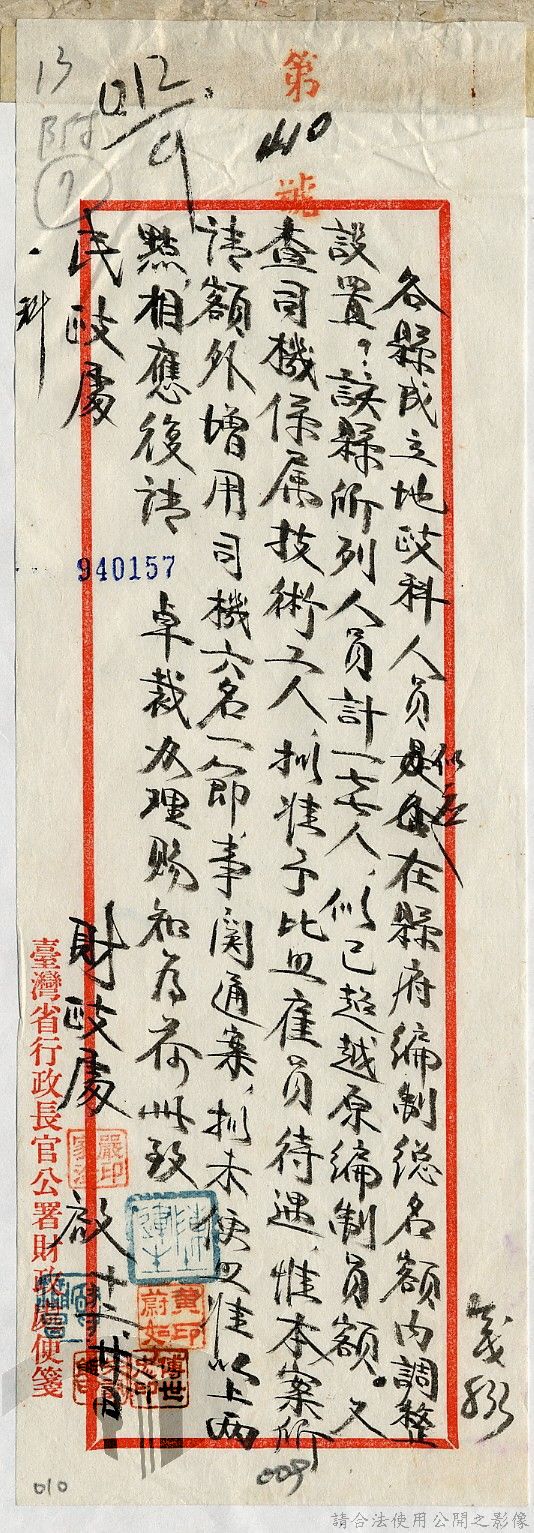 第
410
號
13
附
7
012/9
各縣成立地政科人員似應在縣府編制總名額内調整
設置?該縣所列人員計一七七人,似已超越原編制員額。又
查司機係屬技術工人,擬准予比照雇員待遇,惟本案所
請額外增用司機六名一節事関通案,擬未便照准以上兩
點,相應復請 卓裁办理賜知為荷此致
民政處
一科
財政處 啟
十二 廿日
940157
臺灣省行政長官公署財政處便箋
嚴印家淦
黄印蔚如
傅世
009
010
請合法使用公開之影像